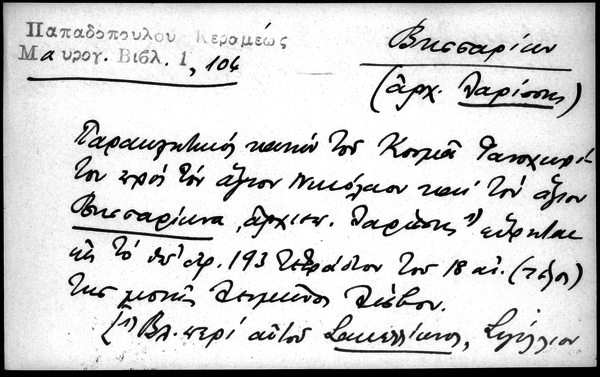 Παπαδοπούλου Κεραμέως
Μαυρογ. Βιβλ. 1, 104
Βησσαρίων
(ἀρχ. Λαρίσσης)
Παρακλητικός κανών τοῦ Κοσμᾶ
του πρός τόν ἅγιον Νικόλαον καί τόν ἅγιον
Βησσαρίωνα, ἀρχιεπ. Λαρίσσης 1) εὕρηται
εἰς τό ὑπ' ἀρ. 193 τετράδιον τοῦ 18 αἰ. (τέλος)
τῆς μονῆς Λειμῶνος Λέσβου.
(1) Βλ. περί αὐτοῦ Σακελλίωνος, Σιγίλλιον